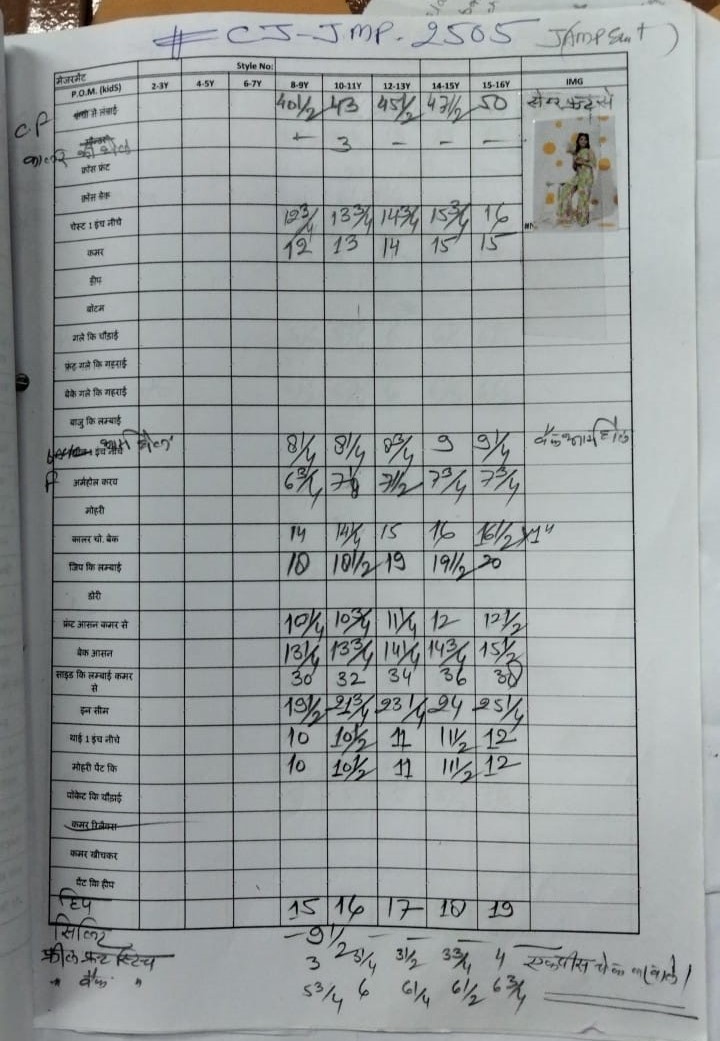 # CJ-JMP. 2505 JAMPSuit)
Style No:
मेजरमेंट
P.O.M. (kids) 2-3Y 4-5Y 6-7Y 8-9Y 10-11Y 12-13Y 14-15Y 15-16Y IMG
C.F से लंबाई 40 1/2 43 45 1/2 47 1/2 50
3 - - -
क्रॉस फ्रंट
क्रॉस बेक
चेस्ट 1 इंच नीचे 12 3/4 13 3/4 14 3/4 15 3/4 16
कमर 12 13 14 15 15
हीप
बॉटम
गले कि चौड़ाई
फ्रंट गले कि गहराई
बेके गले कि गहराई
बाजु कि लम्बाई
इंच नीचे 8 1/4 8 1/4 8 3/4 9 9 1/4
F अर्महोल करव 6 3/4 7 1/2 7 3/4 7 3/4
मोहरी
कालर चो. बेक 14 14 1/2 15 16 16 1/2 x1"
जिप कि लम्बाई 18 18 1/2 19 19 1/2 20
डोरी
फ्रंट आसन कमर से 10 1/4 10 3/4 11 1/4 12 12 1/2
बेक आसन 13 1/4 13 3/4 14 1/4 14 3/4 15 1/2
साइड कि लम्बाई कमर से 30 32 34 36 38
इन सीम 19 1/2 21 3/4 23 1/4 24 25 1/4
थाई 1 इंच नीचे 10 10 1/2 11 11 1/2 12
मोहरी पैंट कि 10 10 1/2 11 11 1/2 12
पॉकेट कि चौड़ाई
कमर रिलैक्स
कमर खीचकर
पैंट कि हीप
हिप 15 16 17 18 19
सिलिट - 9 1/2 - - -
फ्रील फ्रंट स्टिच 3 3 1/4 3 1/2 3 3/4 4
" बैक " 5 3/4 6 6 1/4 6 1/2 6 3/4